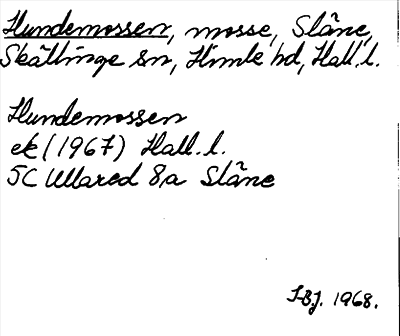 Hundemossen, mosse, Släne,
Skällinge sn, Himle hd, Hall. l.
Hundemossen
ek (1967) Hall. l.
5C Ullared 8a Släne
IBJ. 1968.